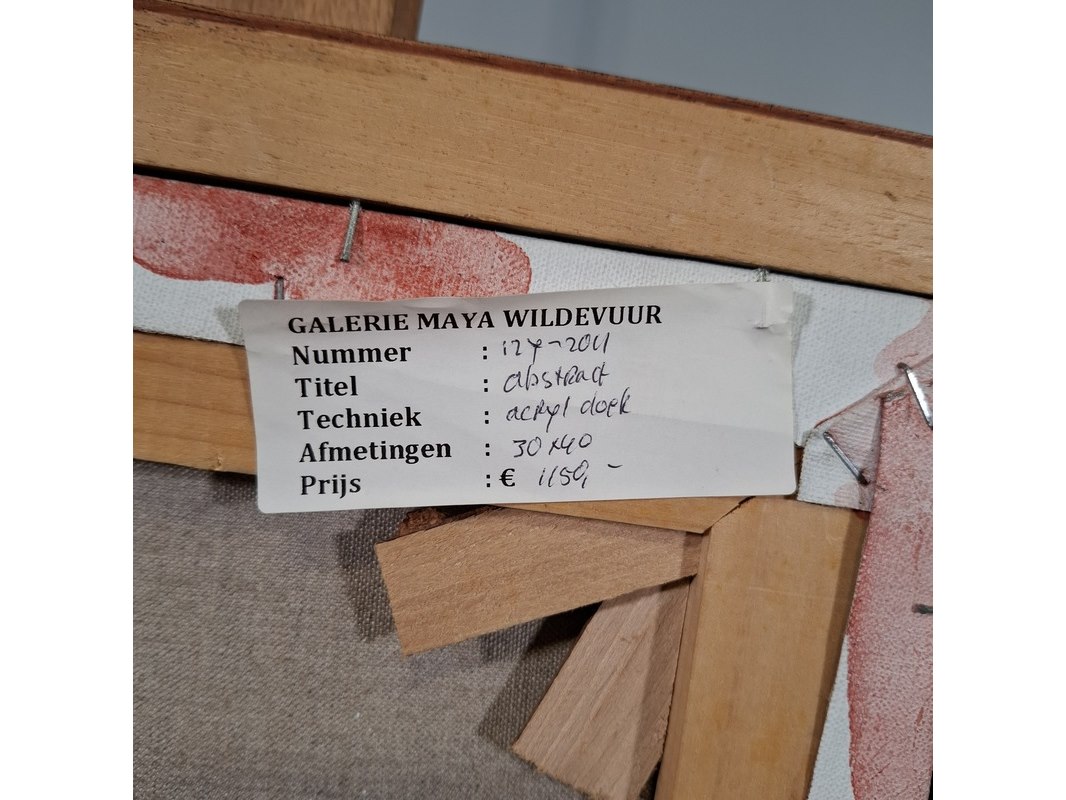 GALERIE MAYA WILDEVUUR
Nummer : 124-2011
Titel : abstract
Techniek : acryl doek
Afmetingen : 30x40
Prijs : € 1150,-